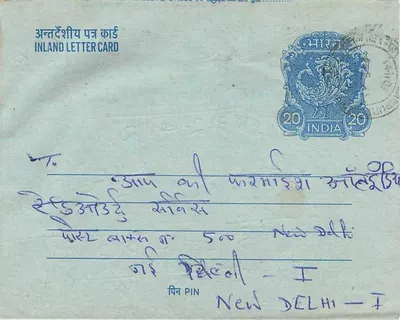 अन्तर्देशीय पत्र कार्ड
INLAND LETTER CARD
भारत
20 20
INDIA
To.
आप की फरमाईश ऑल इंडिया
रेडिओ उर्दु सर्विस
पोस्ट बाक्स नं 500 New Delhi
नई दिल्ली - I
पिन PIN
New DELHI - I